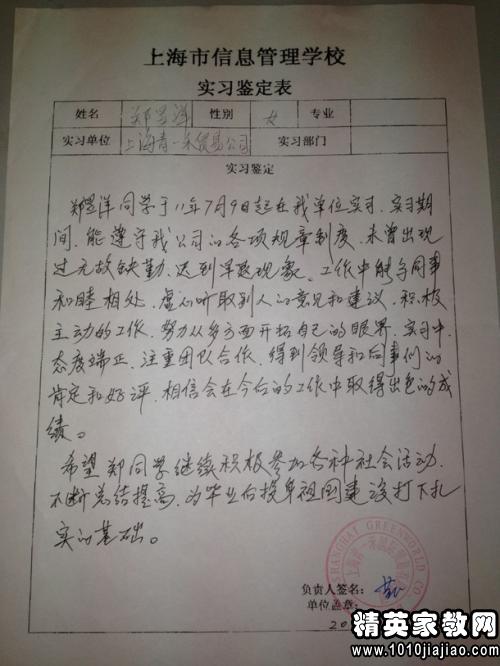 上海市信息管理学校
实习鉴定表
姓名 郑昱洋 性别 女 专业
实习单位 上海青一禾贸易公司 实习部门
实习鉴定
郑昱洋同学于11年7月9日起在我单位实习.实习期
间,能遵守我公司的各项规章制度,未曾出现
过无故缺勤、迟到早退现象。工作中能与同事
和睦相处,虚心听取别人的意见和建议,积极
主动的工作,努力从多方面开拓自己的眼界.实习中,
态度端正,注重团队合作,得到领导和同事们的
肯定和好评,相信会在今后的工作中取得出色的成
绩。
希望郑同学继续积极参加各种社会活动,
不断总结提高,为毕业后投身祖国建设打下扎
实的基础。
SHANGHAI GREENWORLD CO
负责人签名:
单位盖章:
20
精英家教网
www.1010jiajiao.com